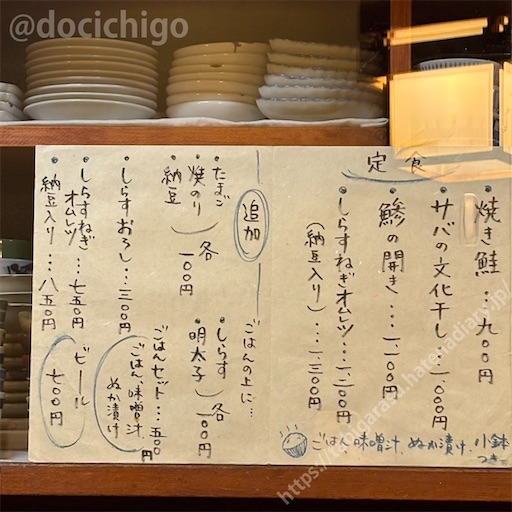 @docichigo
定食
・焼き鮭…九〇〇円
・サバの文化干し…一、〇〇〇円
・鯵の開き…一、一〇〇円
・しらすねぎオムレツ…一、二〇〇円
(納豆入り)…一、三〇〇円
ごはん、味噌汁、ぬか漬け、小鉢
つき
追加
・たまご
・焼のり
・納豆
各一〇〇円
・しらすおろし…三〇〇円
・しらすねぎ
オムレツ…七五〇円
納豆入り…八五〇円
ごはんの上に…
・しらす
・明太子
各一〇〇円
ごはんセット…三五〇円
ごはん、味噌汁、
ぬか漬け
ビール
七〇〇円